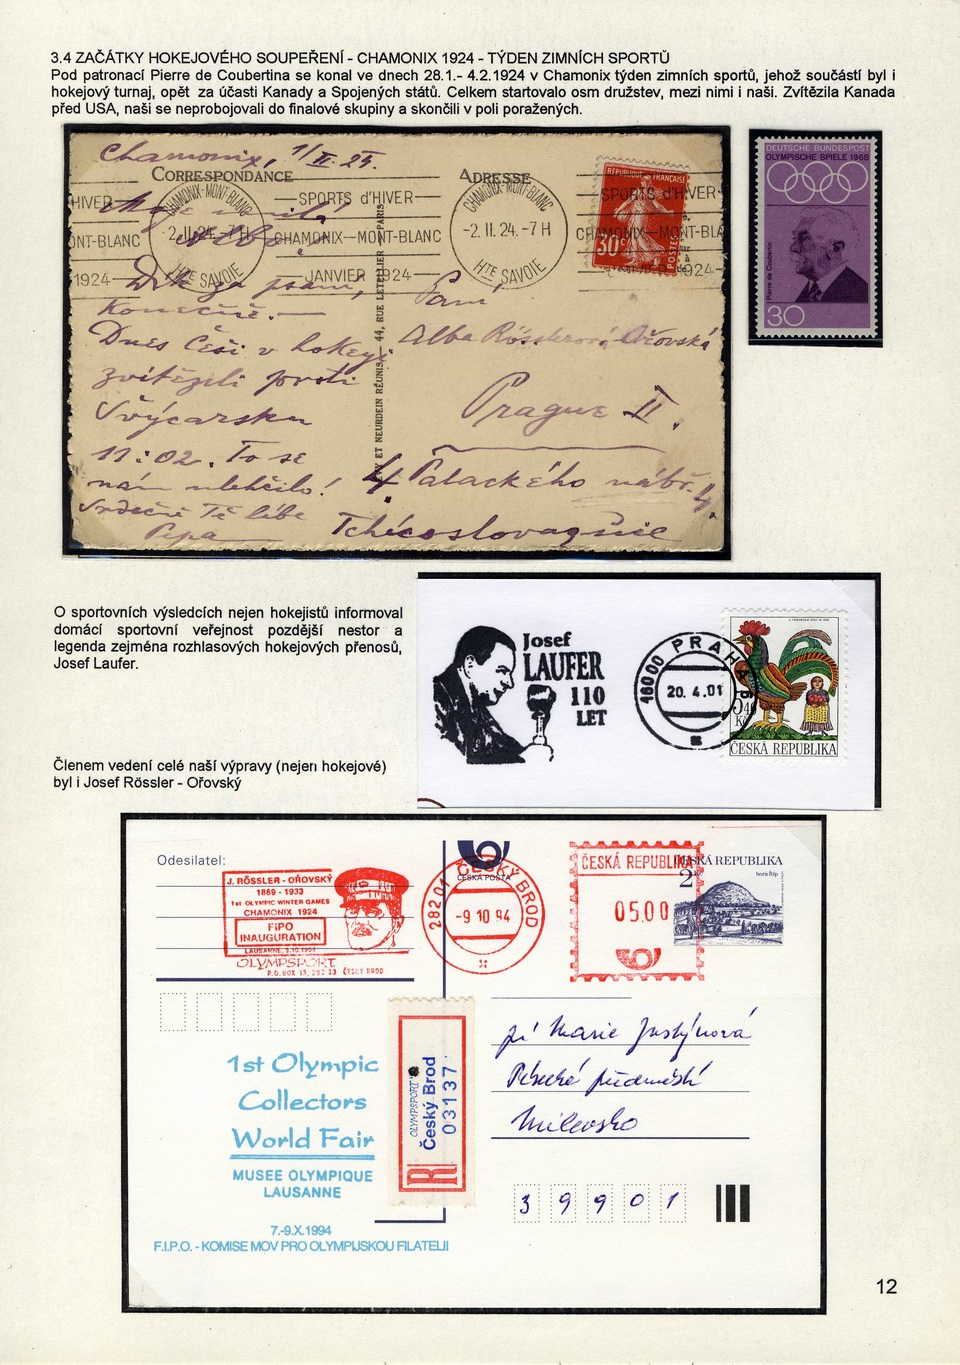 3.4 ZAČÁTKY HOKEJOVÉHO SOUPEŘENÍ - CHAMONIX 1924 - TÝDEN ZIMNÍCH SPORTŮ
Pod patronací Pierre de Coubertina se konal ve dnech 28.1.- 4.2.1924 v Chamonix týden zimních sportů, jehož součástí byl i
hokejový turnaj, opět za účasti Kanady a Spojených států. Celkem startovalo osm družstev, mezi nimi i naši. Zvítězila Kanada
před USA, naši se neprobojovali do finalové skupiny a skončili v poli poražených.
Chamonix, 1/II. 24.
CORRESPONDANCE
ADRESSE
HIVER
SPORTS d'HIVER
CHAMONIX-MONT-BLANC
2. II. 24. -7 H
HTE SAVOIE
ONT-BLANC
CHAMONIX-MONT-BLANC
1924
JANVIER 1924
CHAMONIX-MONT-BLANC
-2. II. 24. -7 H
HTE SAVOIE
SPORTS d'HIVER
CHAMONIX-MONT-BLA
1924-
RÉPUBLIQUE FRANÇAISE
30c
POSTES
Moje milá
Albo!
Dík za psaní,
konečně.
Dnes Češi v hokeyi
zvítězili proti
Švýcarsku
11:02. To se
nám ulehčilo!
Srdečně Tě líbe
Pepa
LEVY ET NEURDEIN RÉUNIS, 44, RUE LETELLIER - PARIS
Paní
Alba Rösslerová-Ořovská
Prague II.
Palackého nábř. 4.
Tchécoslovaquie
DEUTSCHE BUNDESPOST
OLYMPISCHE SPIELE 1968
Pierre de Coubertin
30
O sportovních výsledcích nejen hokejistů informoval
domácí sportovní veřejnost pozdější nestor a
legenda zejména rozhlasových hokejových přenosů,
Josef Laufer.
Josef
LAUFER
110
LET
PRAHA
16000
20. 4. 01
5,40
Kč
ČESKÁ REPUBLIKA
Členem vedení celé naší výpravy (nejen hokejové)
byl i Josef Rössler - Ořovský
Odesilatel:
J. RÖSSLER - OŘOVSKÝ
1869 - 1933
1st OLYMPIC WINTER GAMES
CHAMONIX 1924
FIPO
INAUGURATION
LAUSANNE, 9.10.1994
OLYMPSPORT
P.O.BOX 13, 282 23 ČESKÝ BROD
ČESKÁ POŠTA
282 01 ČESKÝ BROD
-9 10 94
ČESKÁ REPUBLIKA
05.00
ČESKÁ REPUBLIKA
2 Kč
hora Říp
1st Olympic
Collectors
World Fair
MUSEE OLYMPIQUE
LAUSANNE
7.-9.X.1994
F.I.P.O. - KOMISE MOV PRO OLYMPIJSKOU FILATELII
R
OLYMPSPORT
Český Brod
03137
pí Marie Justýnová
Písecké předměstí
Milevsko
39901
12